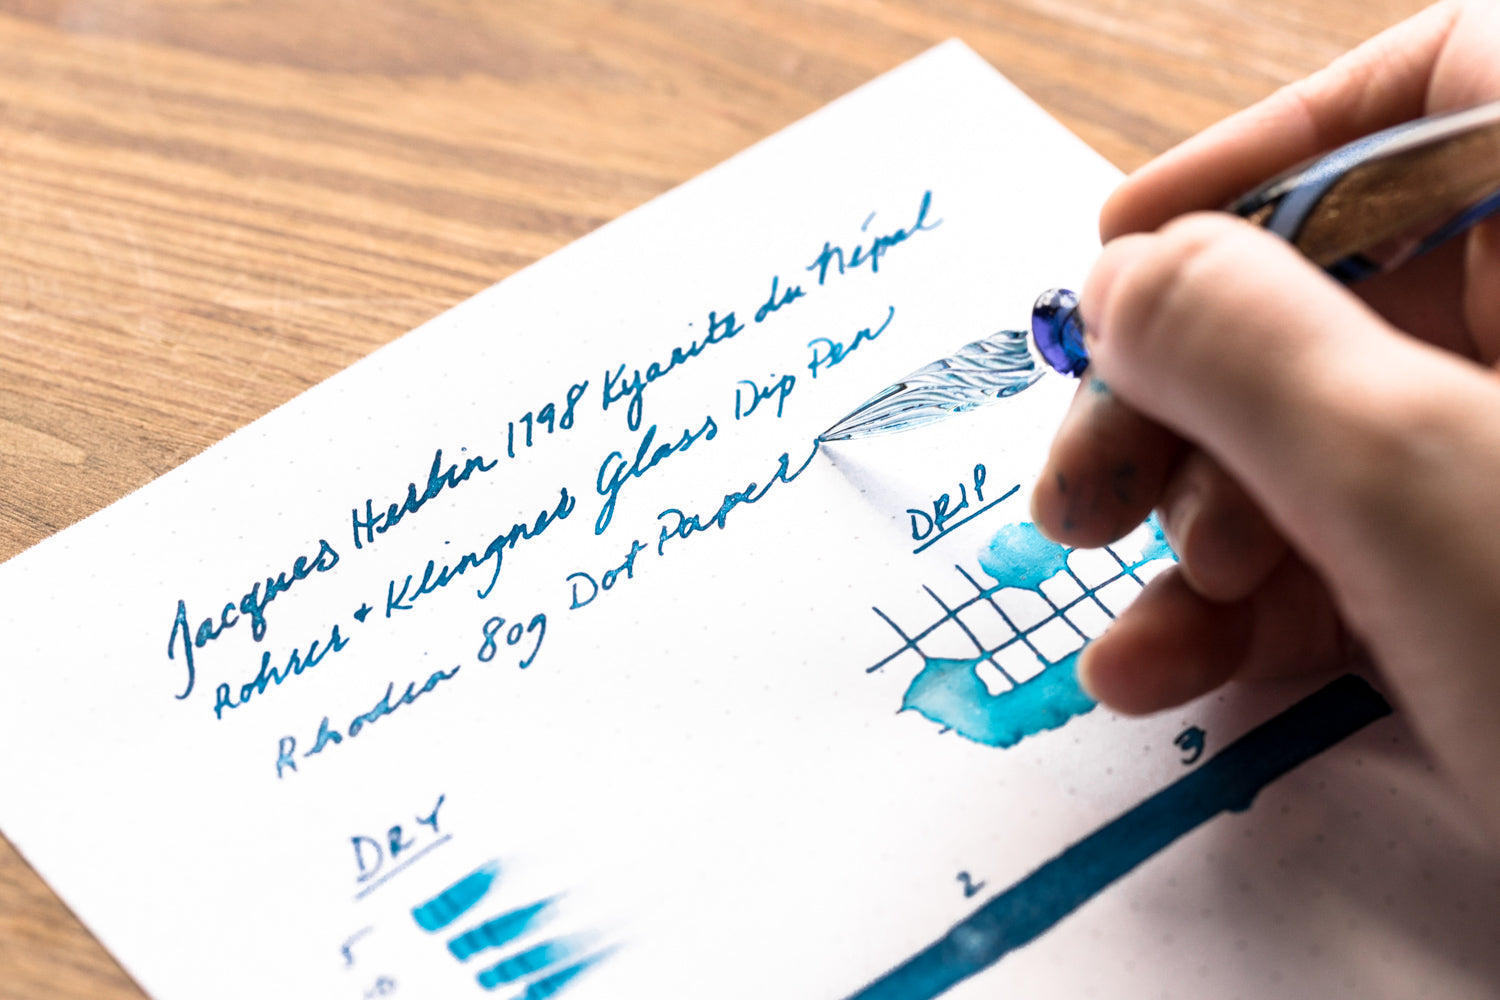 Jacques Herbin 1798 Kyanite du Népal
Rohrer + Klingner Glass Dip Pen
Rhodia 80g Dot Paper
DRIP
DRY
3
2
5
10